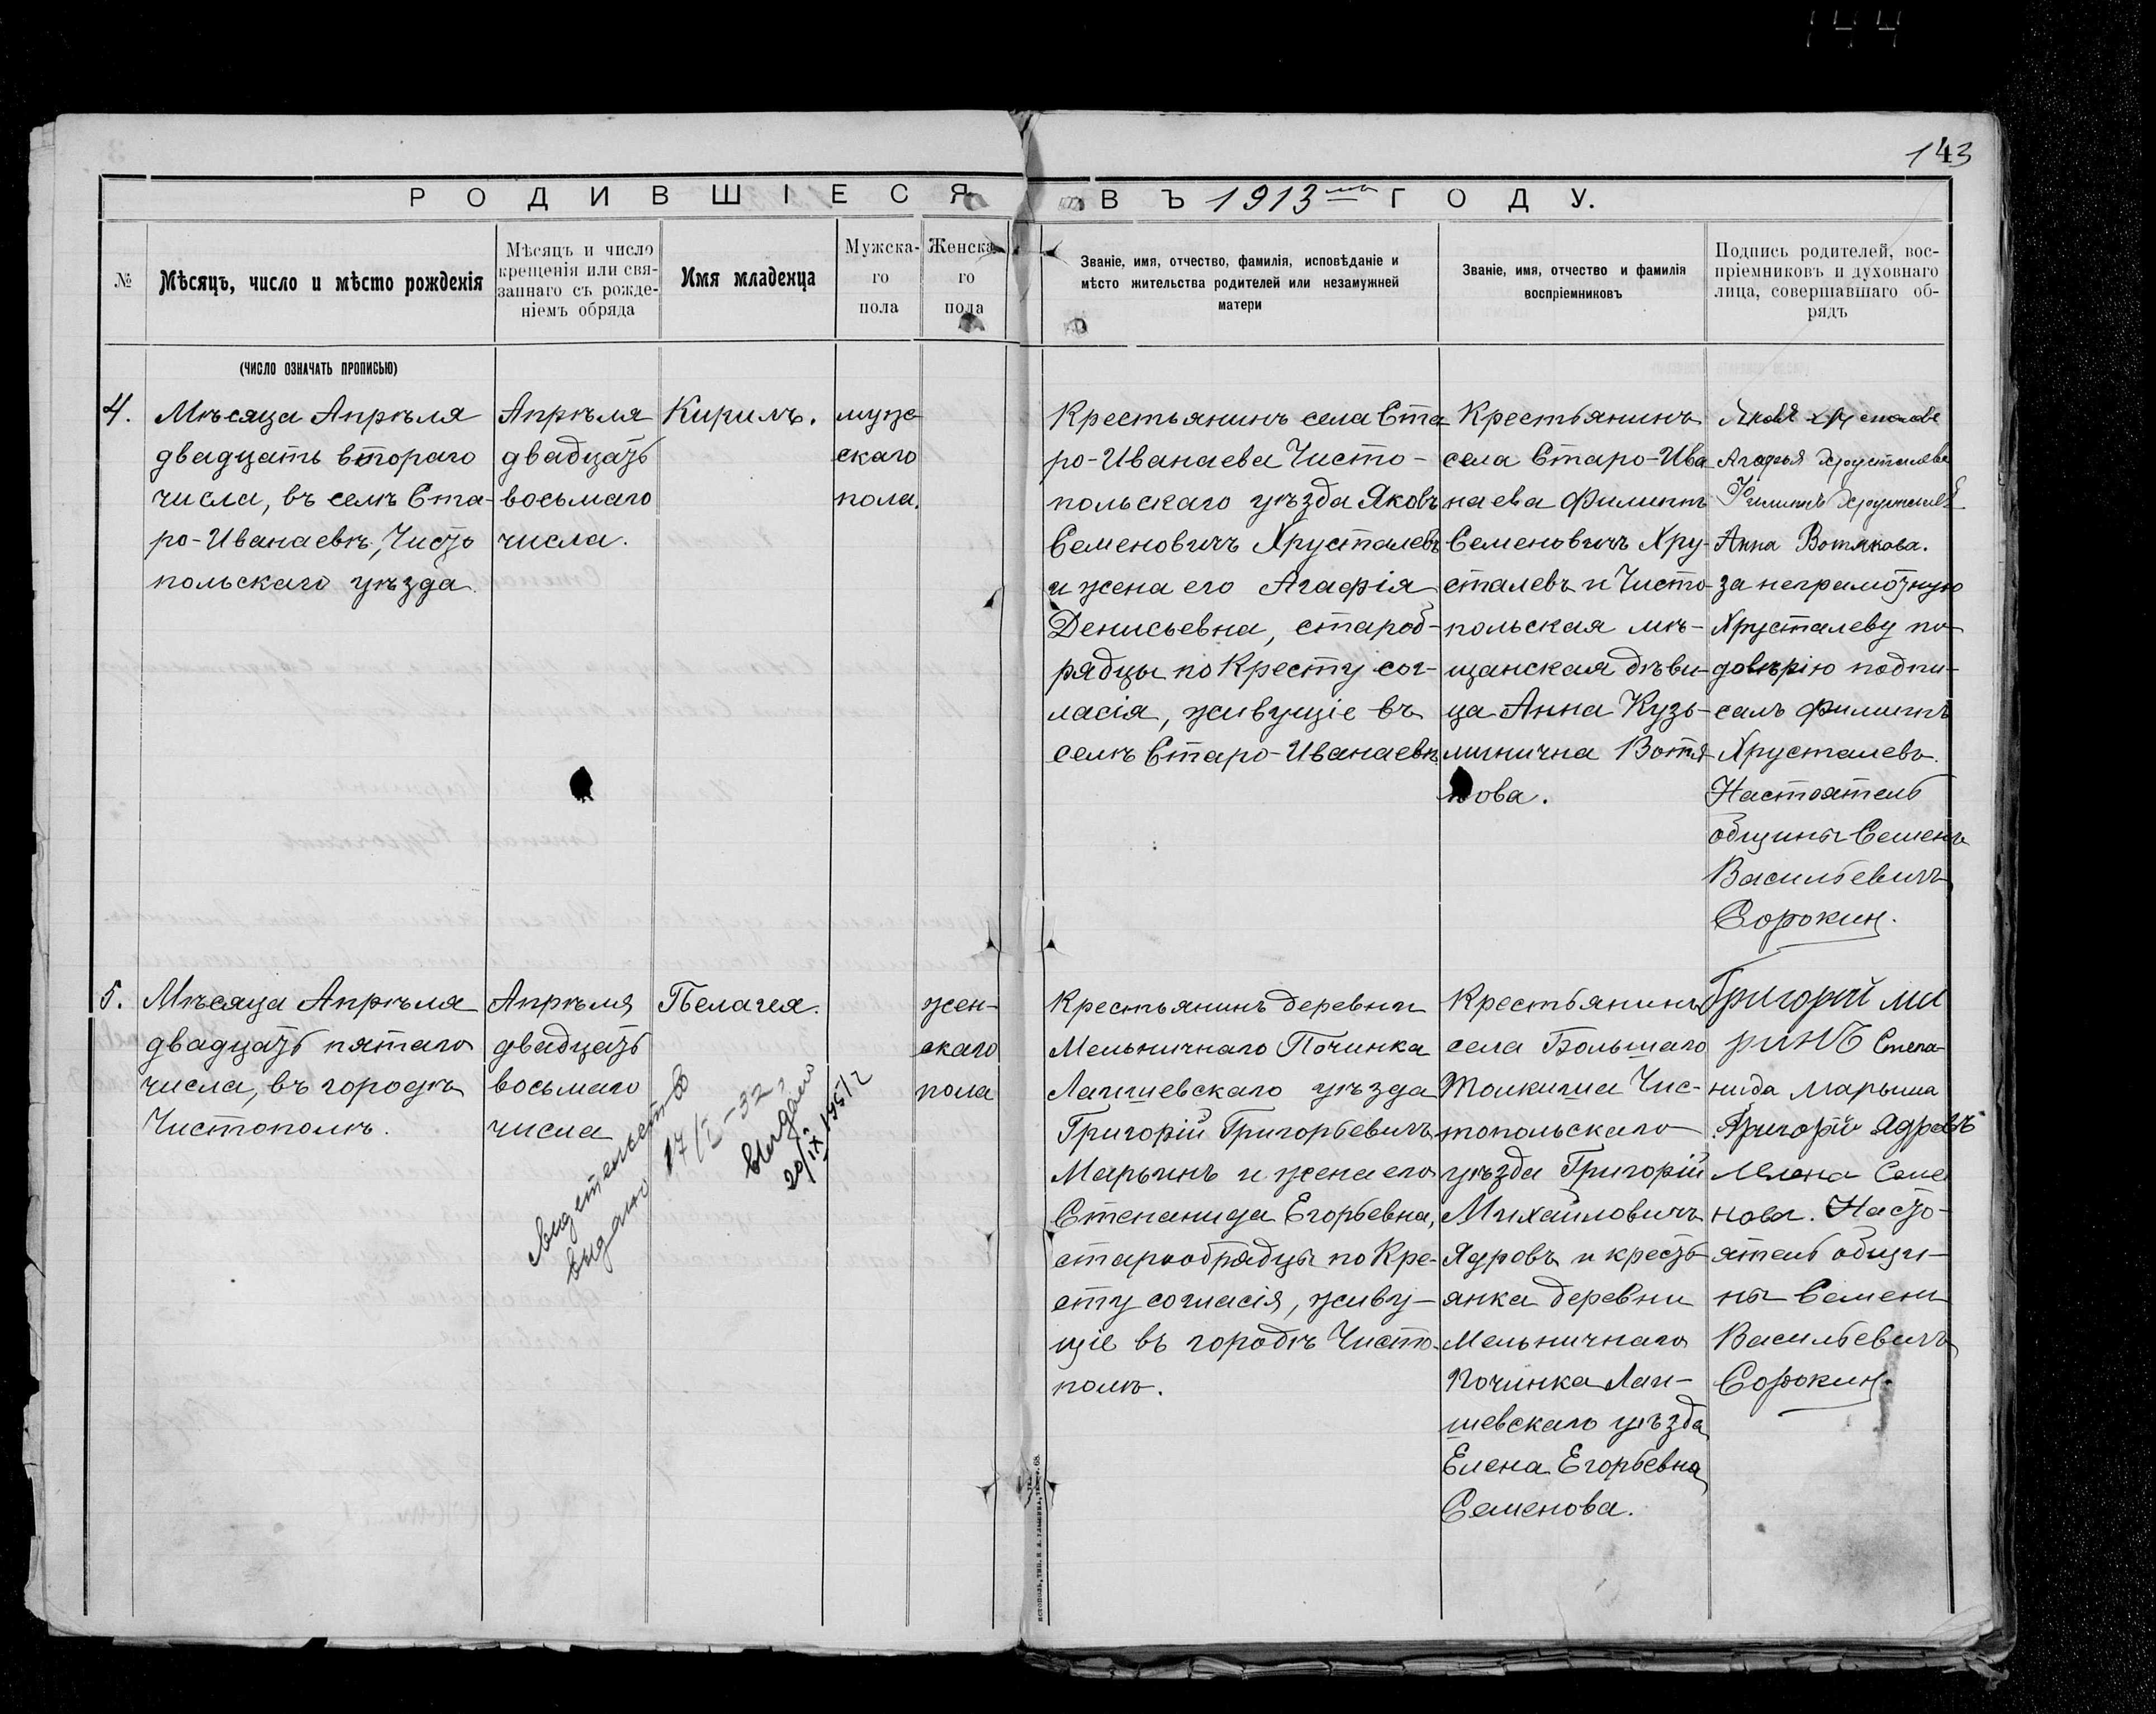 143
РОДИВШІЕСЯ
ВЪ 1913мъ ГОДУ.
№
Мѣсяцъ, число и мѣсто рожденія
Мѣсяцъ и число
крещенія или свя-
заннаго съ рожде-
ніемъ обряда
Имя младенца
Мужска-
го
пола
Женска-
го
пола
Званіе, имя, отчество, фамилія, исповѣданіе и
мѣсто жительства родителей или незамужней
матери
Званіе, имя, отчество и фамилія
воспріемниковъ
Подпись родителей, вос-
пріемниковъ и духовнаго
лица, совершавшаго об-
рядъ
(ЧИСЛО ОЗНАЧАТЬ ПРОПИСЬЮ)
4.
Мѣсяца Апрѣля
двадцать втораго
числа, въ селѣ Ста-
ро-Иванаевѣ, Чисто
польскаго уѣзда.
Апрѣля
двадцать
восьмаго
числа.
Кирилъ.
муж
скаго
пола.
Крестьянинъ села Ста
ро-Иванаева Чисто-
польскаго уѣзда Яковъ
Семеновичъ Хрусталевъ
и жена его Агафія
Денисьевна, староб-
рядцы по Кресту сог-
ласія, живущіе въ
селѣ Старо-Иванаевѣ
Крестьянинъ
села Старо-Ива
наева Филиппъ
Семеновичъ Хру-
сталевъ и Чисто-
польская мѣ-
щанская дѣви-
ца Анна Кузь-
минична Вотя
кова.
Яковъ
Агафья Хрусталева
Филиппъ Хрусталевъ
Анна Вотякова.
за неграмотную
Хрусталеву по
довѣрію подпи-
салъ Филиппъ
Хрусталевъ.
Настоятель
общины Семенъ
Васильевичъ
Сорокин.
5.
Мѣсяца Апрѣля
двадцать пятаго
числа, въ городѣ
Чистополѣ.
Апрѣля
двадцать
восьмаго
числа
Пелагея.
жен-
скаго
пола
Свидетельство
выдано 17/I-32,
выдано
20/IX 1951 г
Крестьянинъ деревни
Мельничнаго Починка
Лаишевскаго уѣзда
Григорій Григорьевичъ
Марьинъ и жена его
Степанида Егорьевна,
старообрядцы по Кре-
сту согласія, живу-
щіе въ городѣ Чисто-
полѣ.
Крестьянинъ
села Большаго
Толкиша Чис-
топольскаго
уѣзда Григорій
Михайловичъ
Ядровъ и кресть
янка деревни
Мельничнаго
Починка Лаи-
шевскаго уѣзда
Елена Егорьевна
Семенова.
Григорий ма
ринъ Степа-
нида Марьина
Григорій Ядровъ
Елена Семе
нова. Насто-
ятель общи-
ны Семенъ
Васильевичъ
Сорокин.